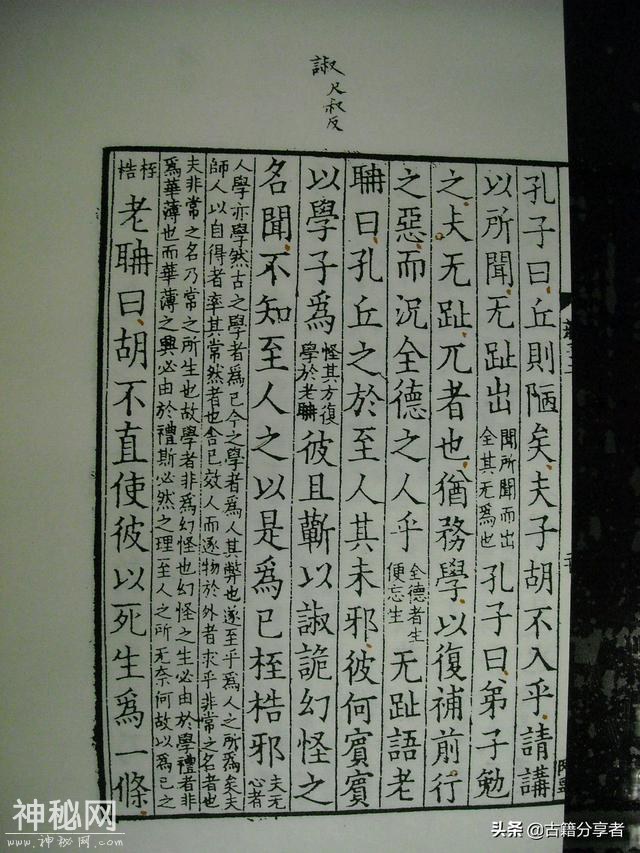 諔尺叔反
孔子曰丘則陋矣夫子胡不入乎請講
以所聞无趾出聞所聞而出全其无為也孔子曰弟子勉
之夫无趾兀者也猶務學以復補前行
之惡而況全德之人乎全德者生便忘生无趾語老
聃曰孔丘之於至人其未邪彼何賓賓
以學子爲怪其方復學於老聃彼且蘄以諔詭幻怪之
名聞不知至人之以是爲己桎梏邪夫无心者
人學亦學然古之學者爲己今之學者爲人其弊也遂至乎爲人之所爲矣夫
師人以自得者率其常然者也舍己效人而逐物於外者求乎非常之名者也
夫非常之名乃常之所生也故學者非爲幻怪也幻怪之生必由於學禮者非
爲華薄也而華薄之興必由於禮斯必然之理至人之所无奈何故以爲己之
桎梏老聃曰胡不直使彼以死生爲一條
神秘网
www.神秘网.com
头条 @古籍分享者